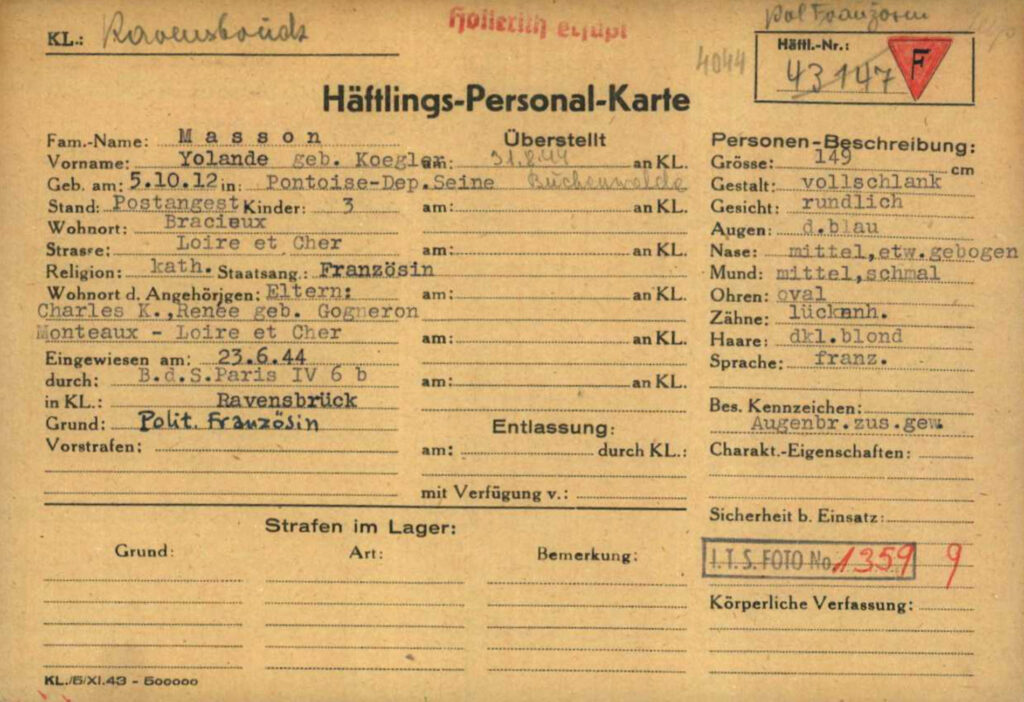 KL.: Ravensbrück
Hollerith erfaßt
pol Französin
4044
Häftl.-Nr.:
43147 F
Häftlings-Personal-Karte
Fam.-Name: Masson
Vorname: Yolande geb. Koegler
Geb. am: 5.10.12 in: Pontoise-Dep.Seine
Stand: Postangest Kinder: 3
Wohnort: Bracieux
Strasse: Loire et Cher
Religion: kath. Staatsang.: Französin
Wohnort d. Angehörigen: Eltern:
Charles K.,Renée geb. Gogneron
Monteaux - Loire et Cher
Eingewiesen am: 23.6.44
durch: B.d.S.Paris IV 6 b
in KL.: Ravensbrück
Grund: Polit. Französin
Vorstrafen:
Überstellt
am: 31.8.44 an KL.
Buchenwalde
am: an KL.
am: an KL.
am: an KL.
am: an KL.
am: an KL.
Entlassung:
am: durch KL.:
mit Verfügung v.:
Personen-Beschreibung:
Grösse: 149 cm
Gestalt: vollschlank
Gesicht: rundlich
Augen: d.blau
Nase: mittel,etw.gebogen
Mund: mittel,schmal
Ohren: oval
Zähne: lückenh.
Haare: dkl.blond
Sprache: franz.
Bes. Kennzeichen:
Augenbr.zus.gew.
Charakt.-Eigenschaften:
Sicherheit b. Einsatz:
I.T.S. FOTO No. 1359 9
Körperliche Verfassung:
Strafen im Lager:
Grund: Art: Bemerkung:
KL./5/XI.43 - 500000